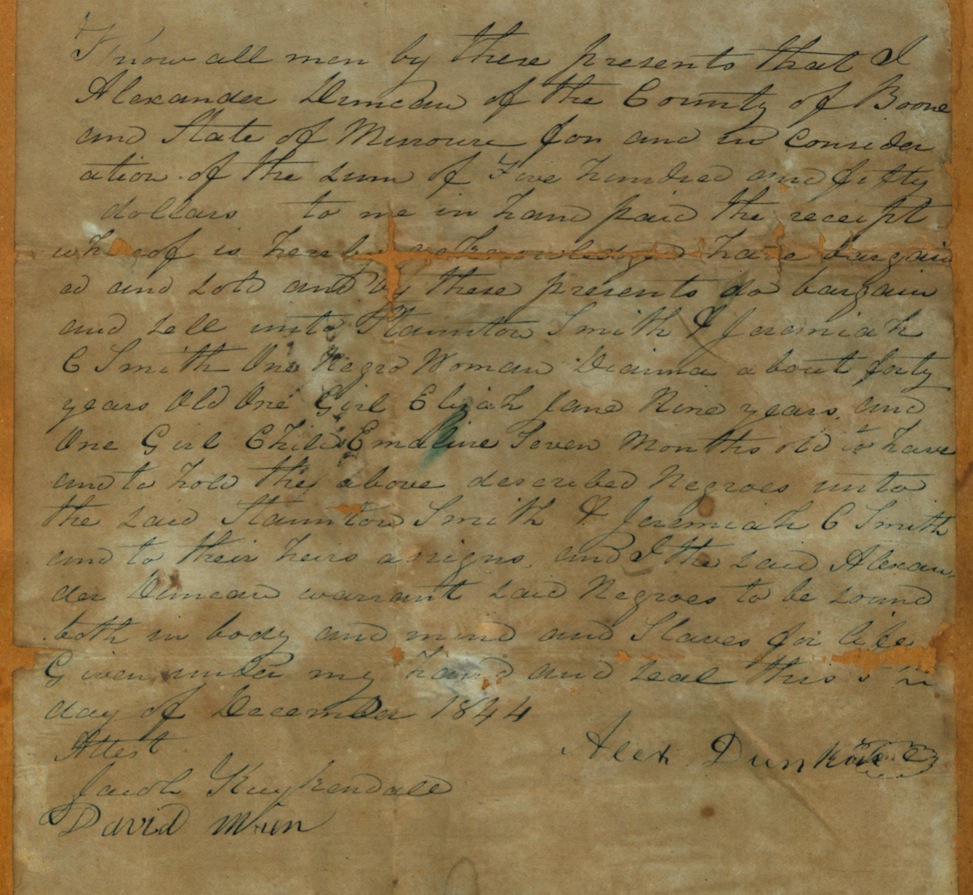 Know all men by these presents that I
Alexander Duncan of the County of Boone
and State of Missourie for and in Consider
ation of the Sum of Five hundred and fifty
dollars to me in hand paid the receipt
whereof is hereby acknowledged have bargain
ed and Sold and by these presents do bargain
and Sell unto Staunton Smith & Jeremiah
C Smith One Negro Woman Dianna about forty
years Old One Girl Elizah Jane Nine years. and
One Girl Child Emaline Seven Months old to have
and to hold the above described Negroes unto
the Said Staunton Smith & Jeremiah C Smith
and to their heirs assigns. and I the Said Alexan
der Duncan warrant Said Negroes to be Sound
both in body and mind and Slaves for life
Given under my hand and Seal this
day of December 1844
Attest
Alex Dunkin
Jacob Kuykendale
David